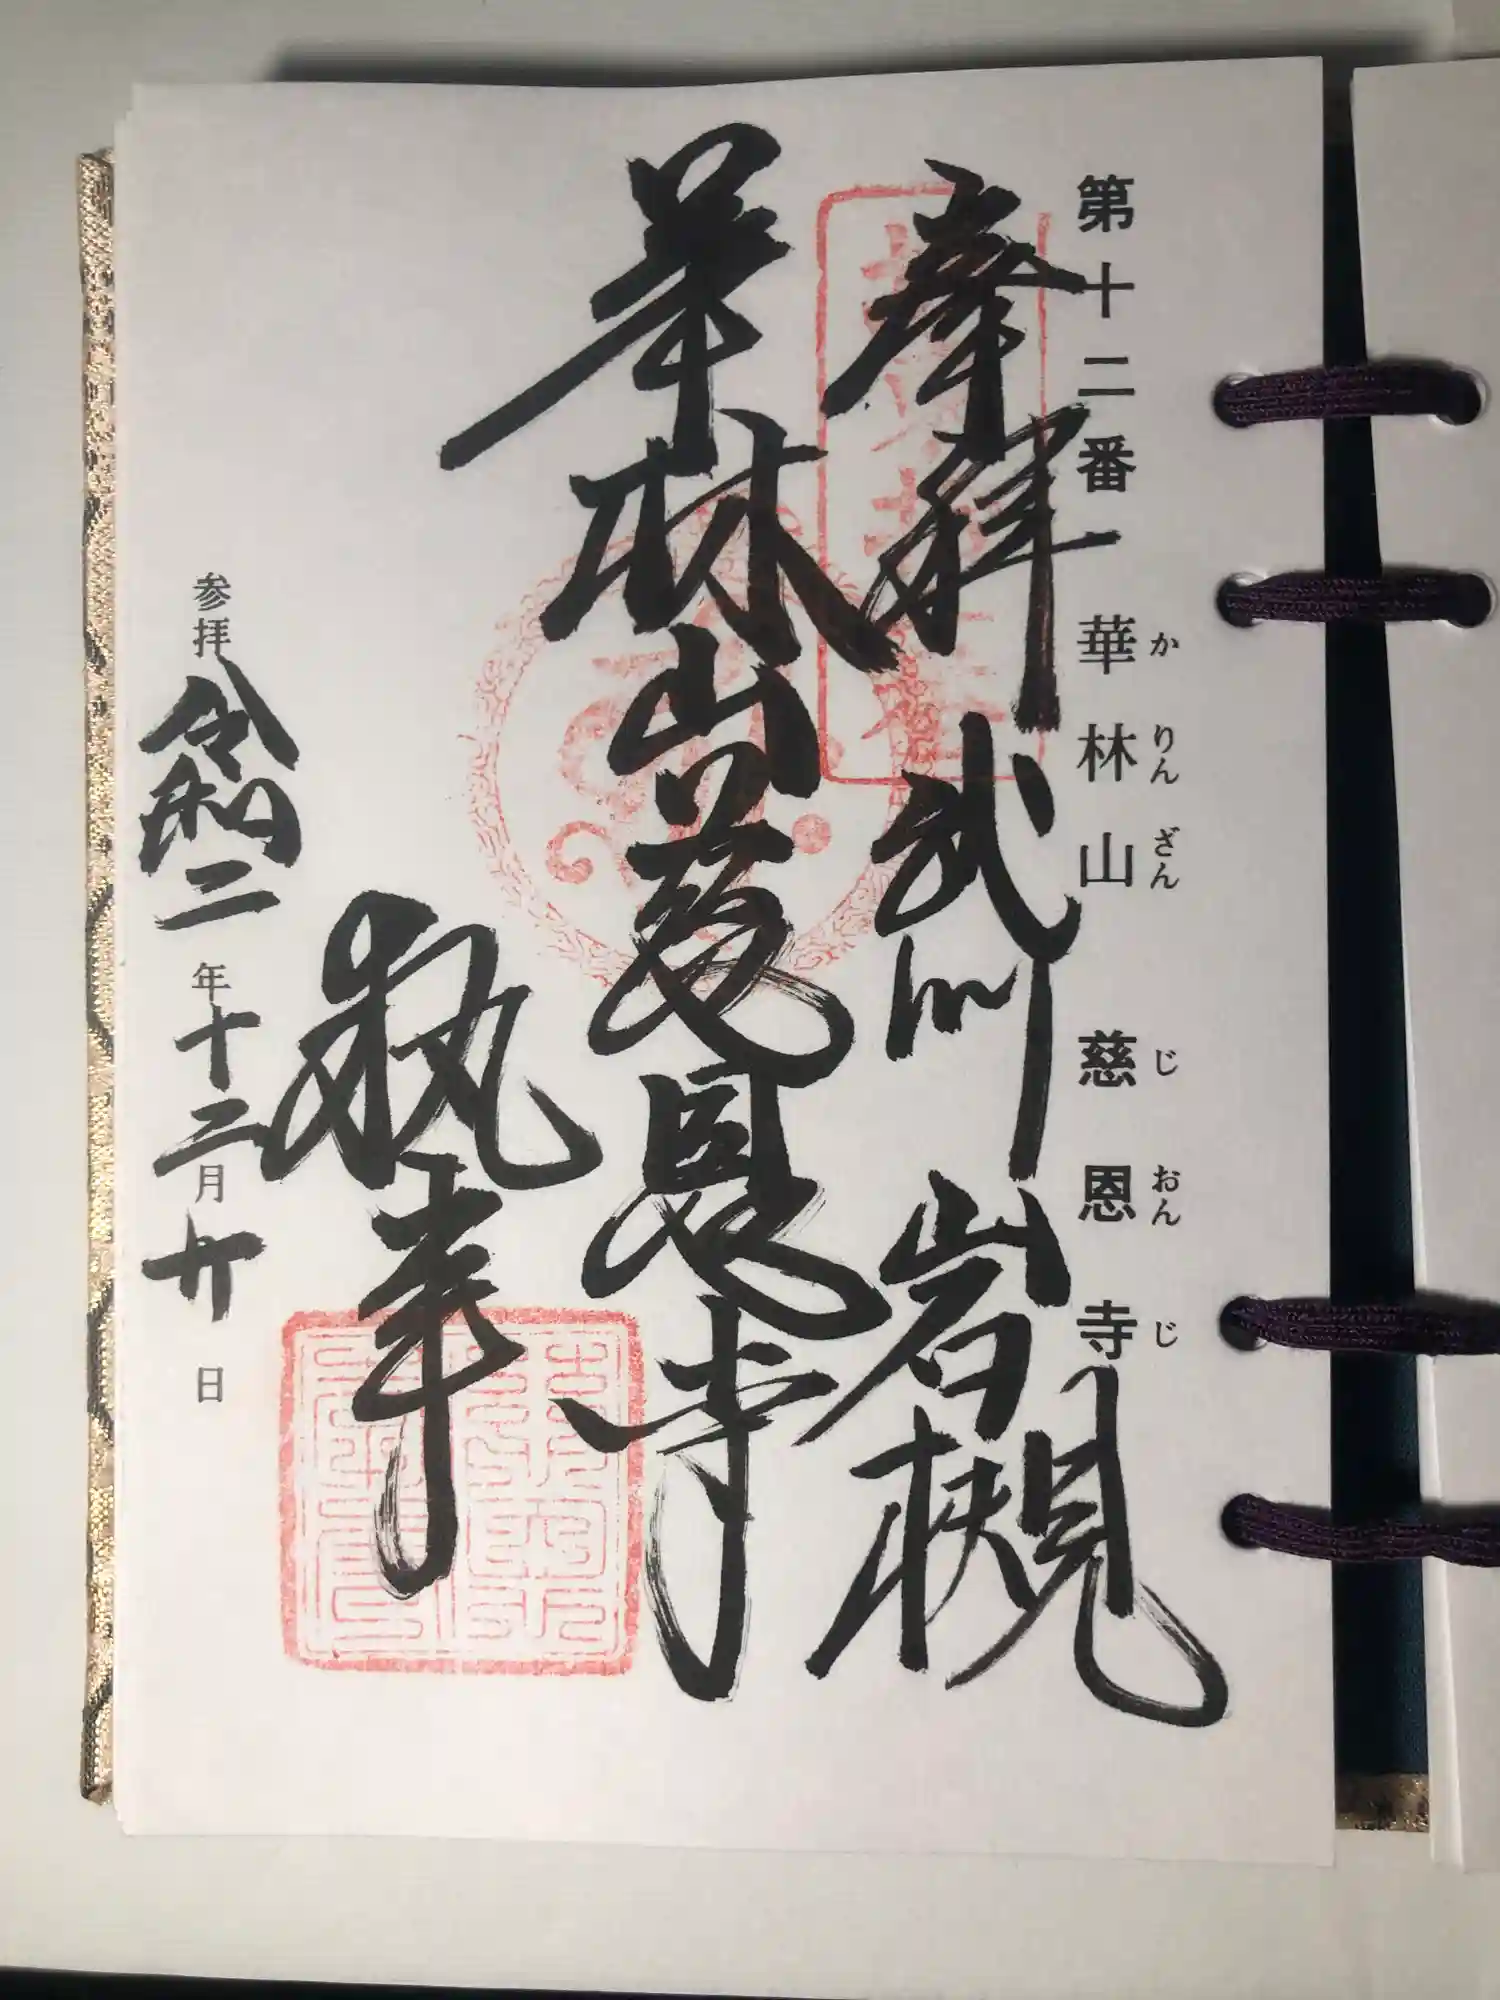 第十二番 華林山 慈恩寺
か りん ざん じ おん じ
奉拝 武州 岩槻
華林山慈恩寺
執事
参拝 令和二年十二月廿日